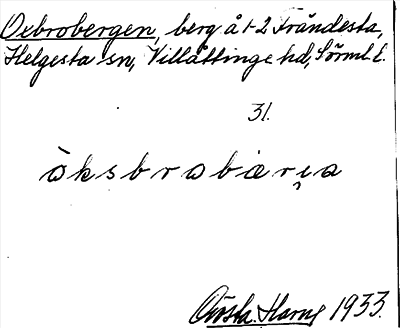 Oxbrobergen, berg å 1-2 Trändesta,
Helgesta sn, Villåttinge hd, Sörml. l.
31.
òksbrobærja
Gösta Harne 1933.